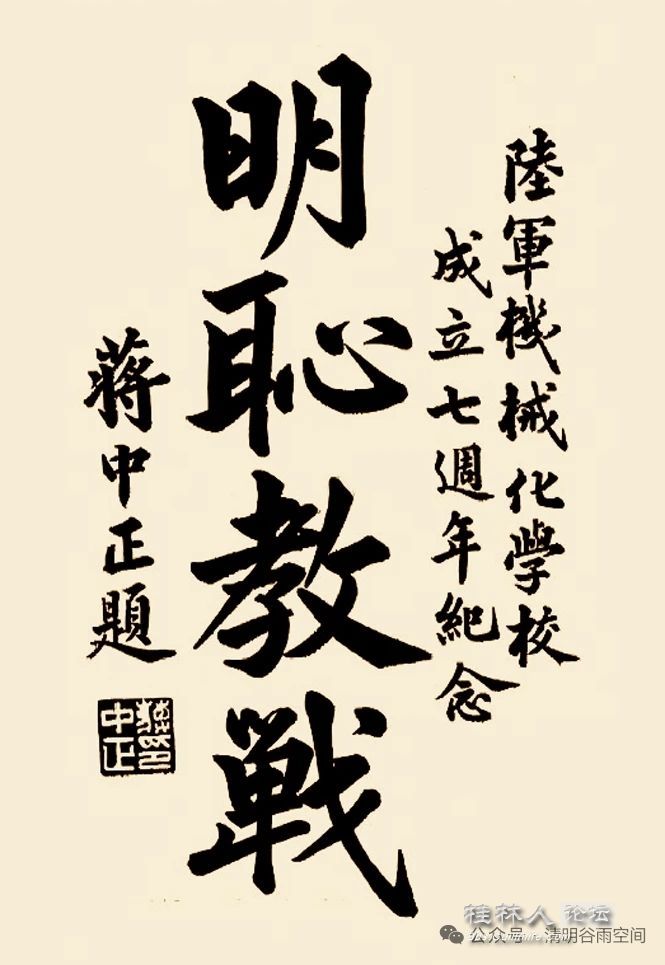 陸軍機械化學校
成立七週年紀念
明恥教戰
蔣中正題
蔣中正印
桂林人 论坛
公众号 · 清明谷雨空间